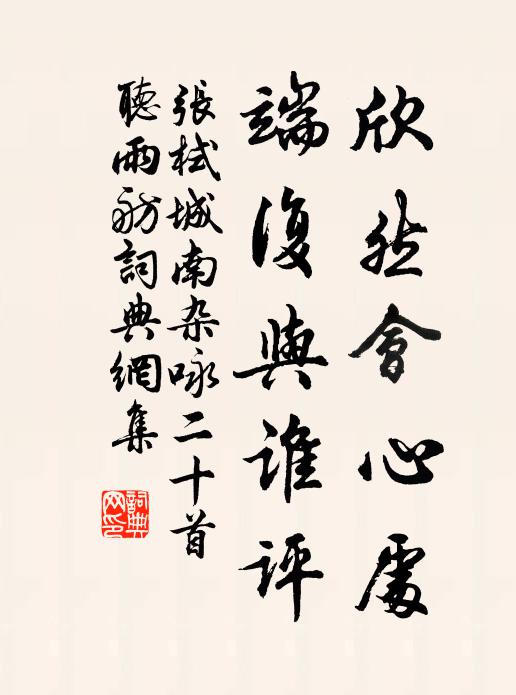 欣然會心處
端復與誰評
張栻城南杂咏二十首
聽雨舫詞典網集
詞典网印